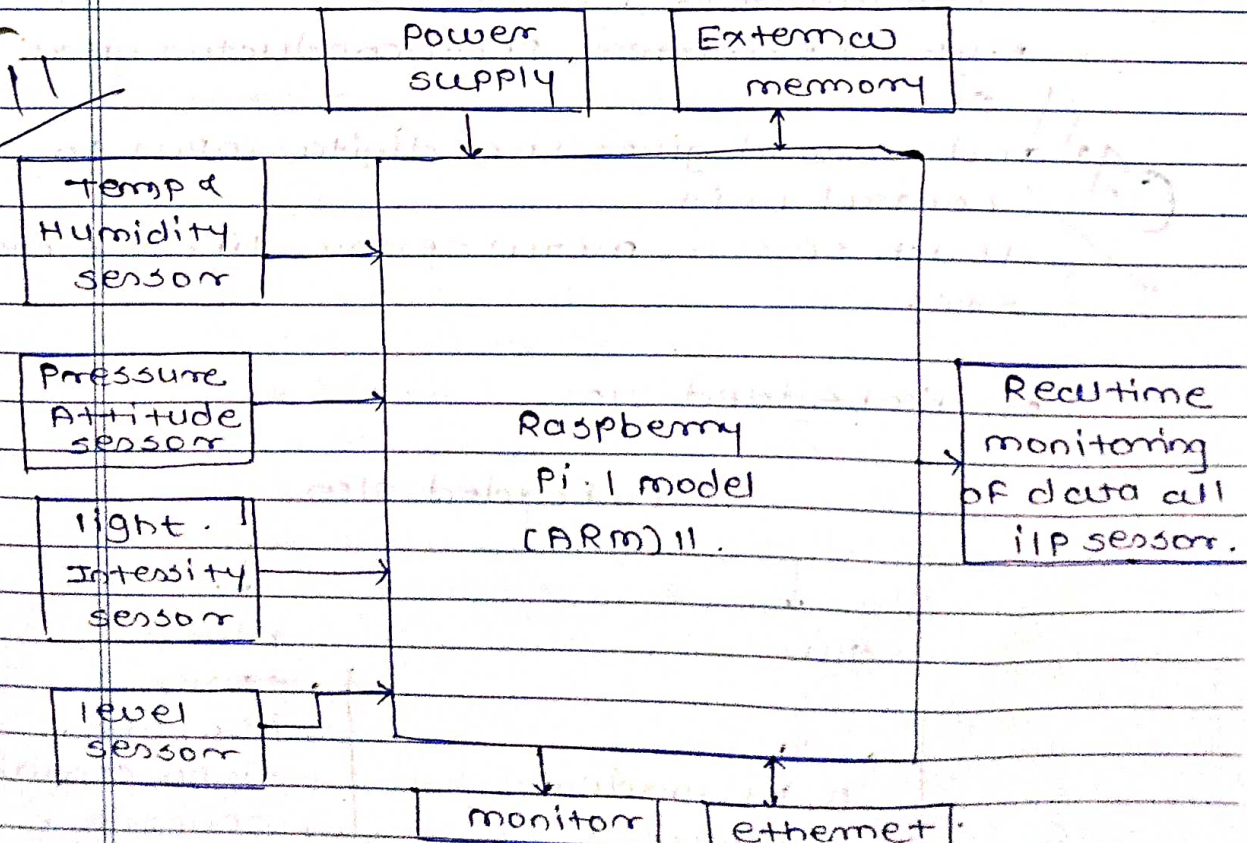 Power
supply
External
memory
Temp &
Humidity
sensor
Pressure
Attitude
sensor
light
Intensity
sensor
level
sensor
Raspberry
Pi. 1 model
(ARM) 11.
Realtime
monitoring
of data all
i/p sensor.
monitor
ethernet